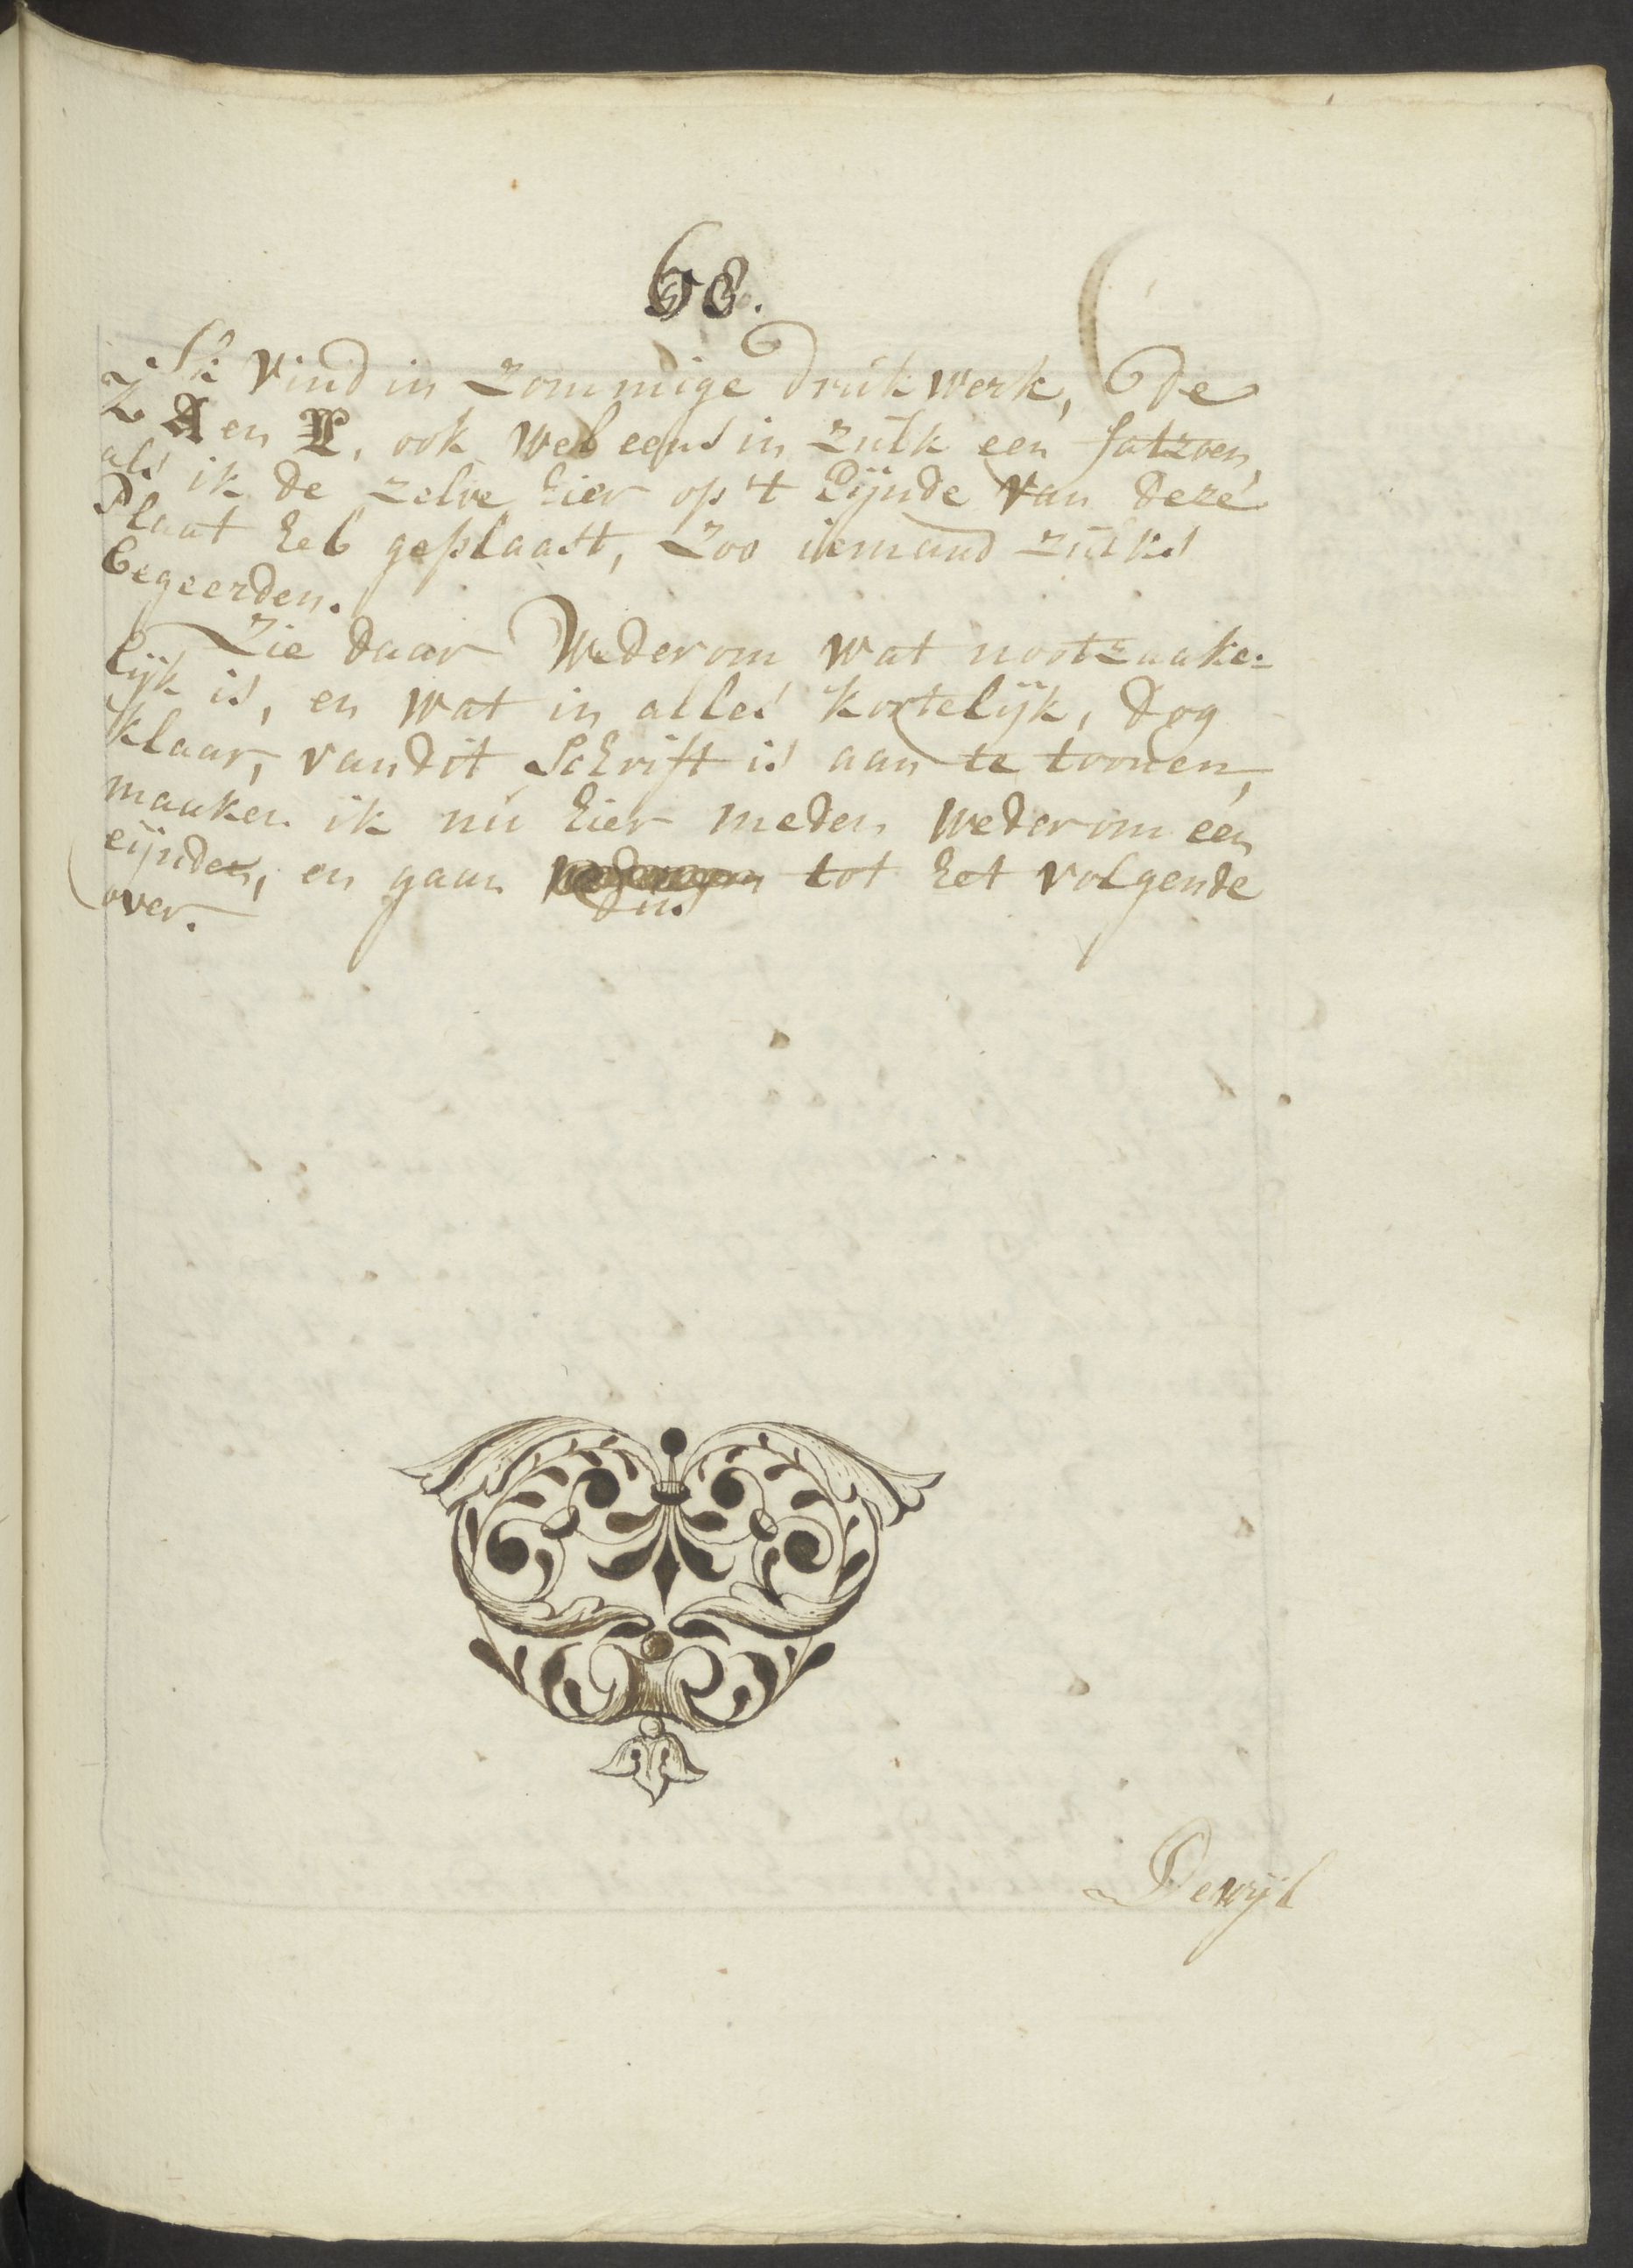 68.
Ik vind in zommige Drukwerk, De
Z A en P, ook wel eens in zulk een fatzoen,
als ik de zelve hier op 't Eijnde van deze
Plaat heb geplaast, zoo iemand zulks
begeerden.
Zie daar Wederom wat nootzaake-
lijk is, en wat in alles kortelijk, dog
klaar, van dit Schrift is aan te toonen,
maaken ik nu hier meden wederom een
eijnden, en gaan dus tot het volgende
over.
Dewijl